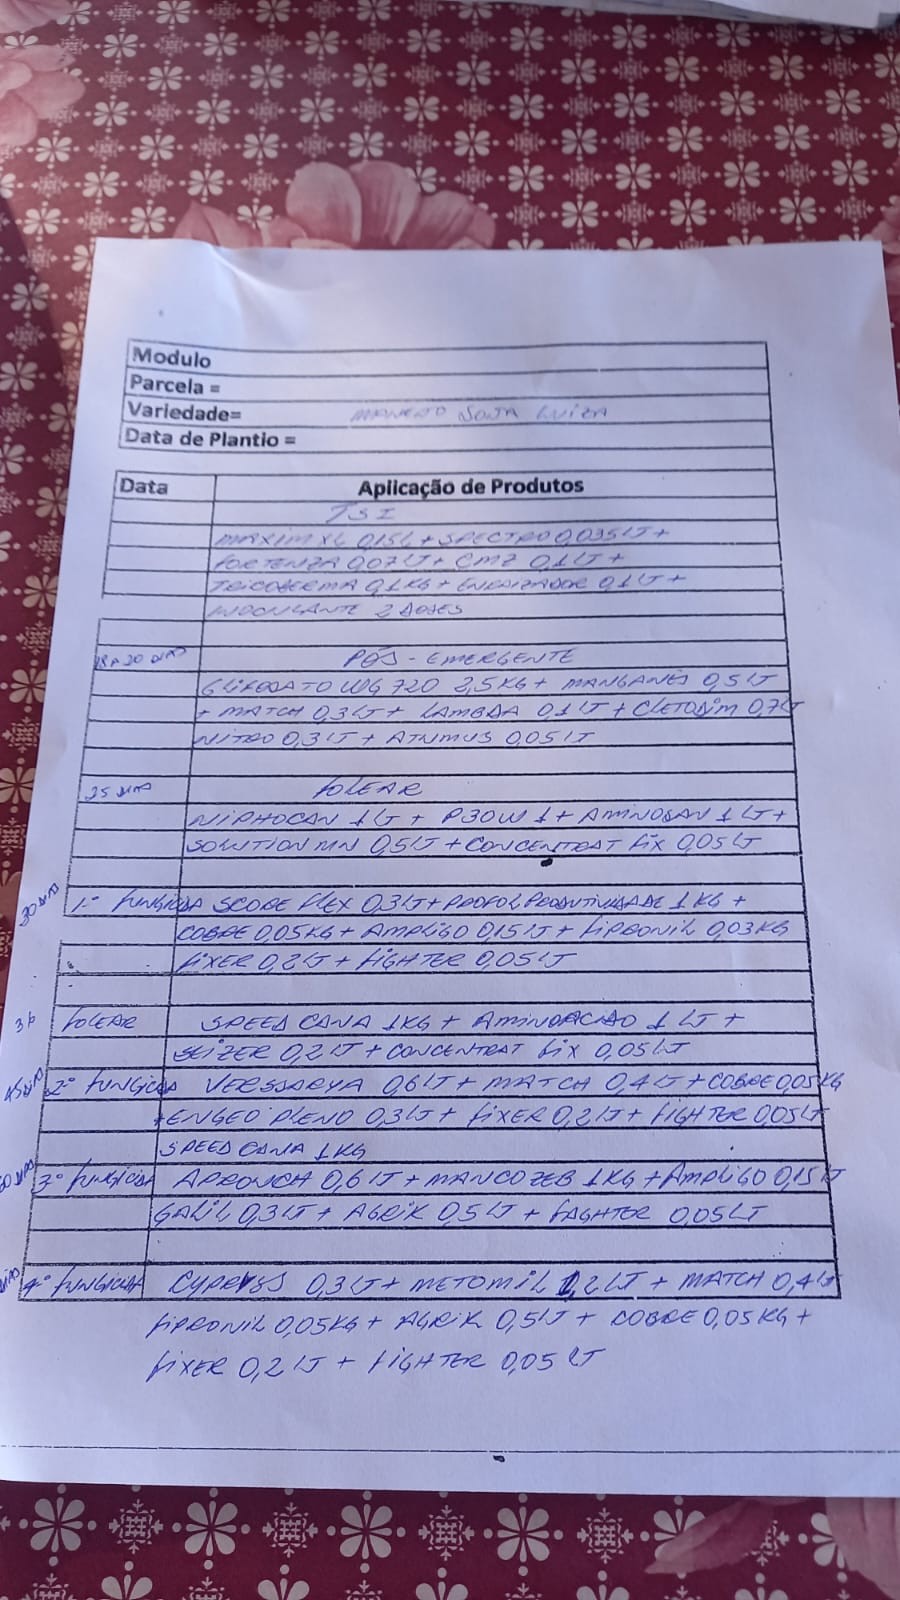 Modulo
Parcela =
Variedade= MANEJO SOJA LUIZA
Data de Plantio =
Data Aplicação de Produtos
TSI
MAXIM XL 0,15L + SPECTRO 0,035LT +
FORTENZA 0,07LT + CMZ 0,1LT +
TRICODERMA 0,1KG + ENRAIZADOR 0,1LT +
INOCULANTE 2 DOSES
18 A 20 DIAS PÓS-EMERGENTE
GLIFOSATO WG 720 2,5KG + MANGANÊS 0,5LT
+ MATCH 0,3LT + LAMBDA 0,1LT + CLETODIM 0,7LT
NITRO 0,3LT + ATUMUS 0,05LT
25 DIAS FOLEAR
NIPHOCAN 1LT + P30W 1 + AMINOSAN 1LT +
SOLUTION MN 0,5LT + CONCENTRAT FIX 0,05LT
30 DIAS 1º FUNGICIDA SCORE FLEX 0,3LT + PROPOL PRODUTIVIDADE 1KG +
COBRE 0,05KG + AMPLIGO 0,15LT + FIPRONIL 0,03KG
FIXER 0,2LT + FIGHTER 0,05LT
FOLEAR SPEED CANA 1KG + AMINOACIDO 1LT +
SEIZER 0,2LT + CONCENTRAT FIX 0,05LT
45 DIAS 2º FUNGICIDA VERSSARYA 0,6LT + MATCH 0,4LT + COBRE 0,05KG
+ ENGEO PLENO 0,3LT + FIXER 0,2LT + FIGHTER 0,05LT
SPEED CANA 1KG
DIAS 3º FUNGICIDA APRONCH 0,6LT + MANCOZEB 1KG + AMPLIGO 0,15LT
GALIL 0,3LT + AGRIK 0,5LT + FAGHTER 0,05LT
DIAS 4º FUNGICIDA CYPRESS 0,3LT + METOMIL 1,2LT + MATCH 0,4LT
FIPRONIL 0,05KG + AGRIK 0,5LT + COBRE 0,05KG +
FIXER 0,2LT + FIGHTER 0,05LT